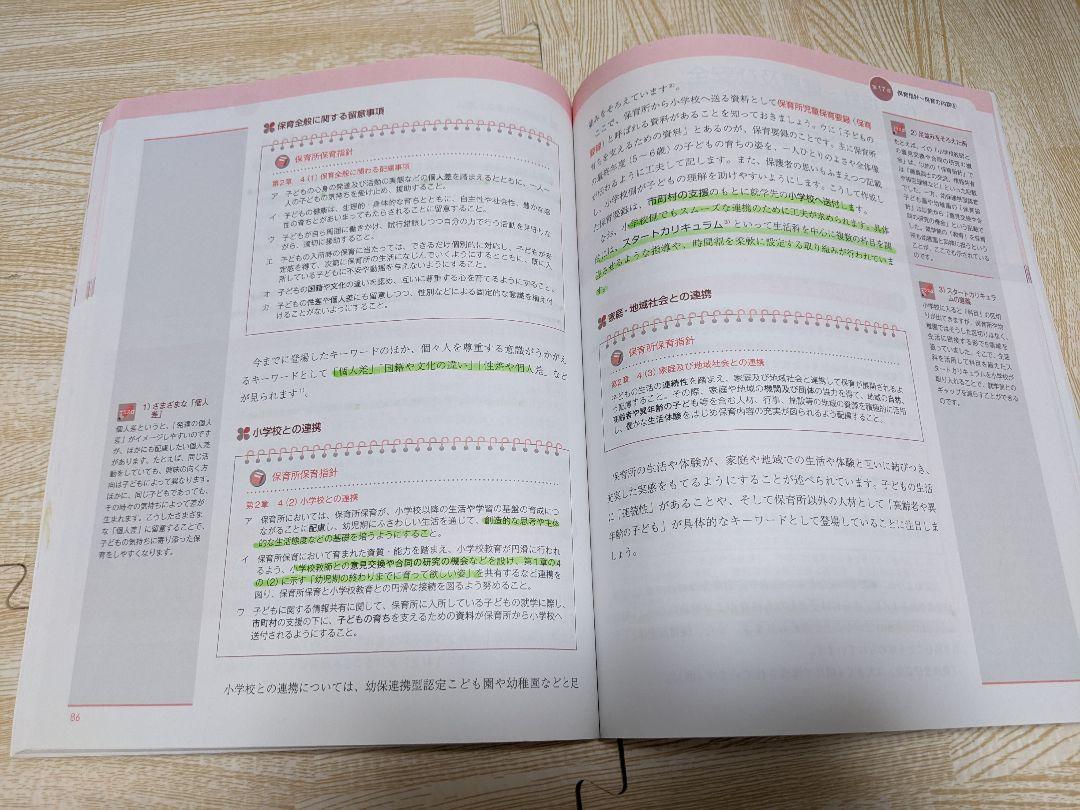 保育全般に関する留意事項
保育所保育指針
第2章 4(1)保育全般に関わる配慮事項
ア 子どもの心身の発達及び活動の実態などの個人差を踏まえるとともに、一人一
人の子どもの気持ちを受け止め、援助すること。
イ 子どもの健康は、生理的・身体的な育ちとともに、自主性や社会性、豊かな感
性の育ちとがあいまってもたらされることに留意すること。
ウ 子どもが自ら周囲に働きかけ、試行錯誤しつつ自分の力で行う活動を見守りな
がら、適切に援助すること。
エ 子どもの入所時の保育に当たっては、できるだけ個別的に対応し、子どもが安
定感を得て、次第に保育所の生活になじんでいくようにするとともに、既に入
所している子どもに不安や動揺を与えないようにすること。
オ 子どもの国籍や文化の違いを認め、互いに尊重する心を育てるようにすること。
カ 子どもの性差や個人差にも留意しつつ、性別などによる固定的な意識を植え付
けることがないようにすること。
今までに登場したキーワードのほか、個々人を尊重する意識がうかがえ
るキーワードとして「個人差」「国籍や文化の違い」「性差や個人差」など
が見られます1)。
1) さまざまな「個人
差」
個人差というと、「発達の個人
差」がイメージしやすいのです
が、ほかにも配慮したい個人差
があります。たとえば、同じ活
動をしていても、興味の向く方
向は子どもによって異なります。
ほかに、同じ子どもであっても、
その時々の気持ちによって差が
生まれます。こうしたさまざま
な「個人差」に留意することで、
子どもの気持ちに寄り添った保
育をしやすくなります。
小学校との連携
保育所保育指針
第2章 4(2)小学校との連携
ア 保育所においては、保育所保育が、小学校以降の生活や学習の基盤の育成につ
ながることに配慮し、幼児期にふさわしい生活を通じて、創造的な思考や主体
的な生活態度などの基礎を培うようにすること。
イ 保育所保育において育まれた資質・能力を踏まえ、小学校教育が円滑に行われ
るよう、小学校教師との意見交換や合同の研究の機会などを設け、第1章の4
の(2)に示す「幼児期の終わりまでに育って欲しい姿」を共有するなど連携を
図り、保育所保育と小学校教育との円滑な接続を図るよう努めること。
ウ 子どもに関する情報共有に関して、保育所に入所している子どもの就学に際し、
市町村の支援の下に、子どもの育ちを支えるための資料が保育所から小学校へ
送付されるようにすること。
小学校との連携については、幼保連携型認定こども園や幼稚園などと足
86
第17章 保育指針〜保育の内容⑤
並みをそろえています2)。
ここで、保育所から小学校へ送る資料として保育所児童保育要録(保育
要録)と呼ばれる資料があることを知っておきましょう。ウに「子どもの
育ちを支えるための資料」とあるのが、保育要録のことです。主に保育所
の最終年度(5〜6歳)の子どもの育ちの姿を、一人ひとりのよさや全体像
が伝わるように工夫して記します。また、保護者の思いもふまえつつ記載
し、小学校側が子どもの理解を助けやすいようにします。こうして作成し
た保育要録は、市町村の支援のもとに就学先の小学校へ送付します。
なお、小学校側でもスムーズな連携のために工夫が求められます。具体
的には、スタートカリキュラム3)といって生活科を中心に複数の科目を関
連させるような指導や、時間割を柔軟に設定する取り組みが行われていま
す。
家庭・地域社会との連携
保育所保育指針
第2章 4(3)家庭及び地域社会との連携
子どもの生活の連続性を踏まえ、家庭及び地域社会と連携して保育が展開されるよ
う配慮すること。その際、家庭や地域の機関及び団体の協力を得て、地域の自然、
高齢者や異年齢の子ども等を含む人材、行事、施設等の地域の資源を積極的に活用
し、豊かな生活体験をはじめ保育内容の充実が図られるよう配慮すること。
保育所の生活や体験が、家庭や地域での生活や体験と互いに結びつき、
充実した実感をもてるようにすることが述べられています。子どもの生活
に「連続性」があることや、そして保育所以外の人材として「高齢者や異
年齢の子ども」が具体的なキーワードとして登場していることに注目しま
しょう。
2) 足並みをそろえた所
3) スタートカリキュラ
ムの意義
小学校に入ると「科目」の区切
りが出てきますが、保育所や幼
稚園ではそうした区切りはなく、
生活に密接する形で5領域を
扱っていました。そこで、生活
科を活用して科目を越えたス
タートカリキュラムを小学校が
取り入れることで、就学前との
ギャップを減らすことができる
のです。